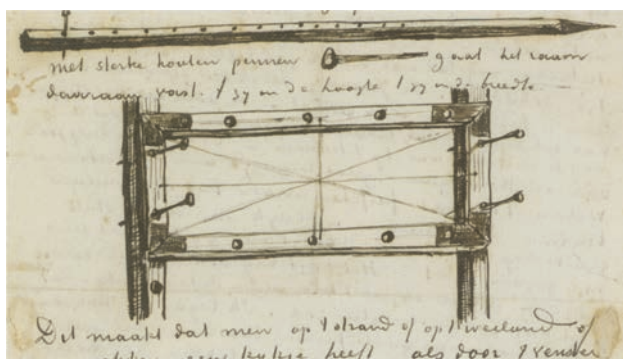 met sterke houten pennen gaat het raam
daaraan vast. 't zij in de hoogte 't zij in de breedte.
Dit maakt dat men op 't strand of op 't weiland of
een kykje heeft als door 't venster